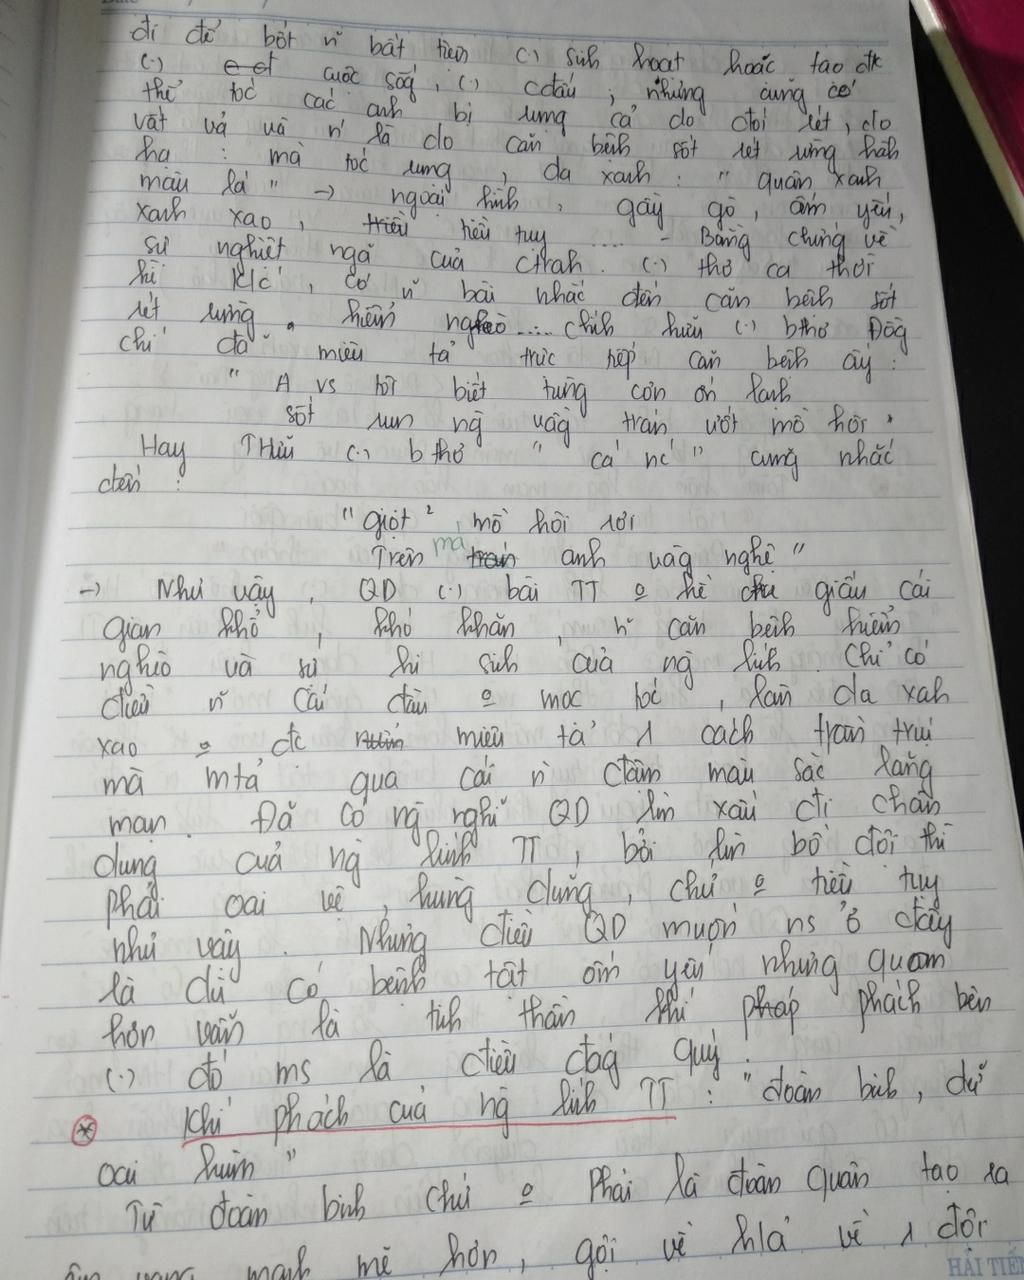 đi để bớt n~ bất tiện (.) sinh hoạt hoặc tạo đk
(.) cuộc sống, (.) cđấu, nhưng cũng có
thể tóc các anh bị rụng cả do đói rét, do
vất vả và n~ là do căn bệnh sốt rét rừng hàh
hạ : mà tóc rụng, da xanh : " quân xanh
màu lá" → ngoại hình, gầy gò, ốm yếu,
xanh xao, tiều tụy ..... - Bằng chứng về
sự nghiệt ngã của ctrah. (.) thơ ca thời
kì k/c', có n~ bài nhắc đến căn bệnh sốt
rét rừng. hiểm nghèo .... chính hữu (.) bthơ Đồg
chí đã miêu tả trực tiếp căn bệnh ấy :
" A vs tôi biết từng cơn ớn lạnh
sốt run ng vầg trán ướt mồ hôi "
Hay THữu (.) b thơ " cá nc' " cũng nhắc
đến :
" giọt ², mồ hôi rơi
Trên má anh vàg nghệ "
→ Như vậy, QD (.) bài TT o hề giấu cái
gian khổ, khó khăn, n~ căn bệnh hiểm
nghèo và sự hi sinh của ng lính. Chỉ có
điều n~ cái đầu o mọc tóc, làn da xah
xao o đc miêu tả 1 cách trần trụi
mà mtả qua cái nì đậm màu sắc lãng
mạn. Đã có ng nghĩ QD lm xấu đi chân
dung của ng lính TT, bởi lm bộ đội thì
phải oai vệ, hùng dũng, chứ o tiều tụy
như vậy. Nhưng điều QD muốn ns ở đây
là dù có bệnh tật ốm yếu nhưng quan
hơn vẫn là tinh thần khí phách bên
(.) đó ms là điều đág quý.
* Khí phách của ng lính TT : " đoàn binh, dữ
oai hùm "
Từ đoàn binh chứ o phải là đoàn quân tạo ra
âm vang mạnh mẽ hơn, gợi về h/ả về 1 đội
HẢI TIẾ